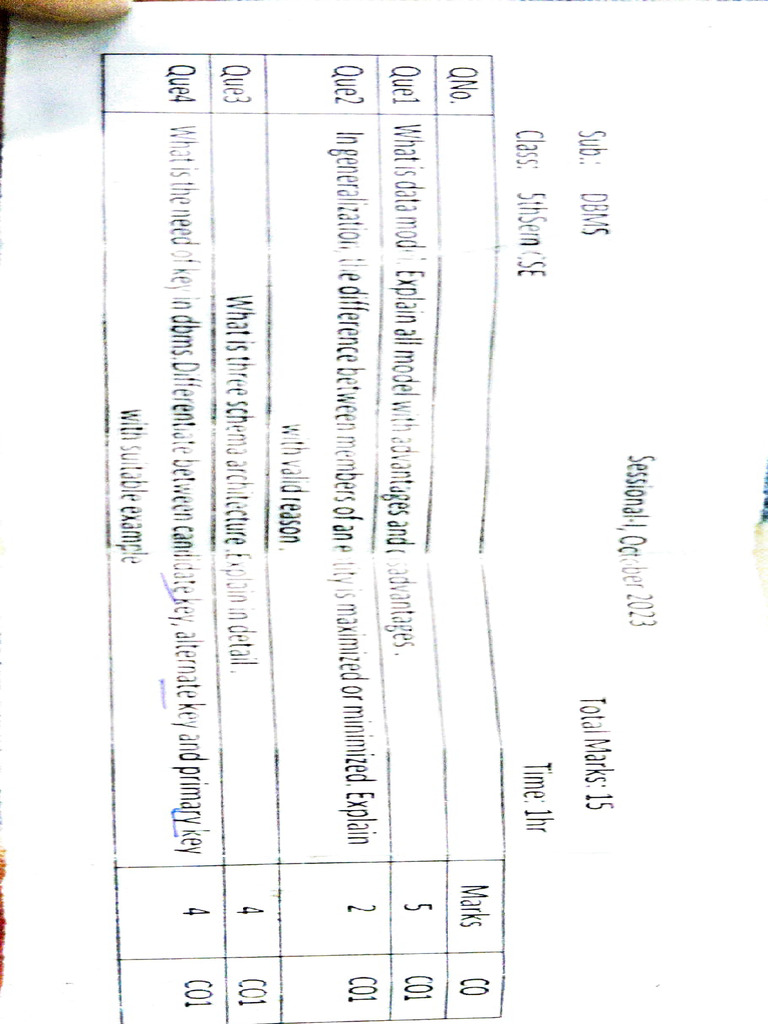 Sessional-I, October 2023
Sub.: DBMS Total Marks: 15
Class: 5thSem CSE Time: 1hr
QNo. Marks CO
Que1 What is data model. Explain all model with advantages and disadvantages. 5 CO1
Que2 In generalization, the difference between members of an entity is maximized or minimized. Explain 2 CO1
with valid reason.
Que3 What is three schema architecture. Explain in detail. 4 CO1
Que4 What is the need of key in dbms.Differentiate between candidate key, alternate key and primary key 4 CO1
with suitable example